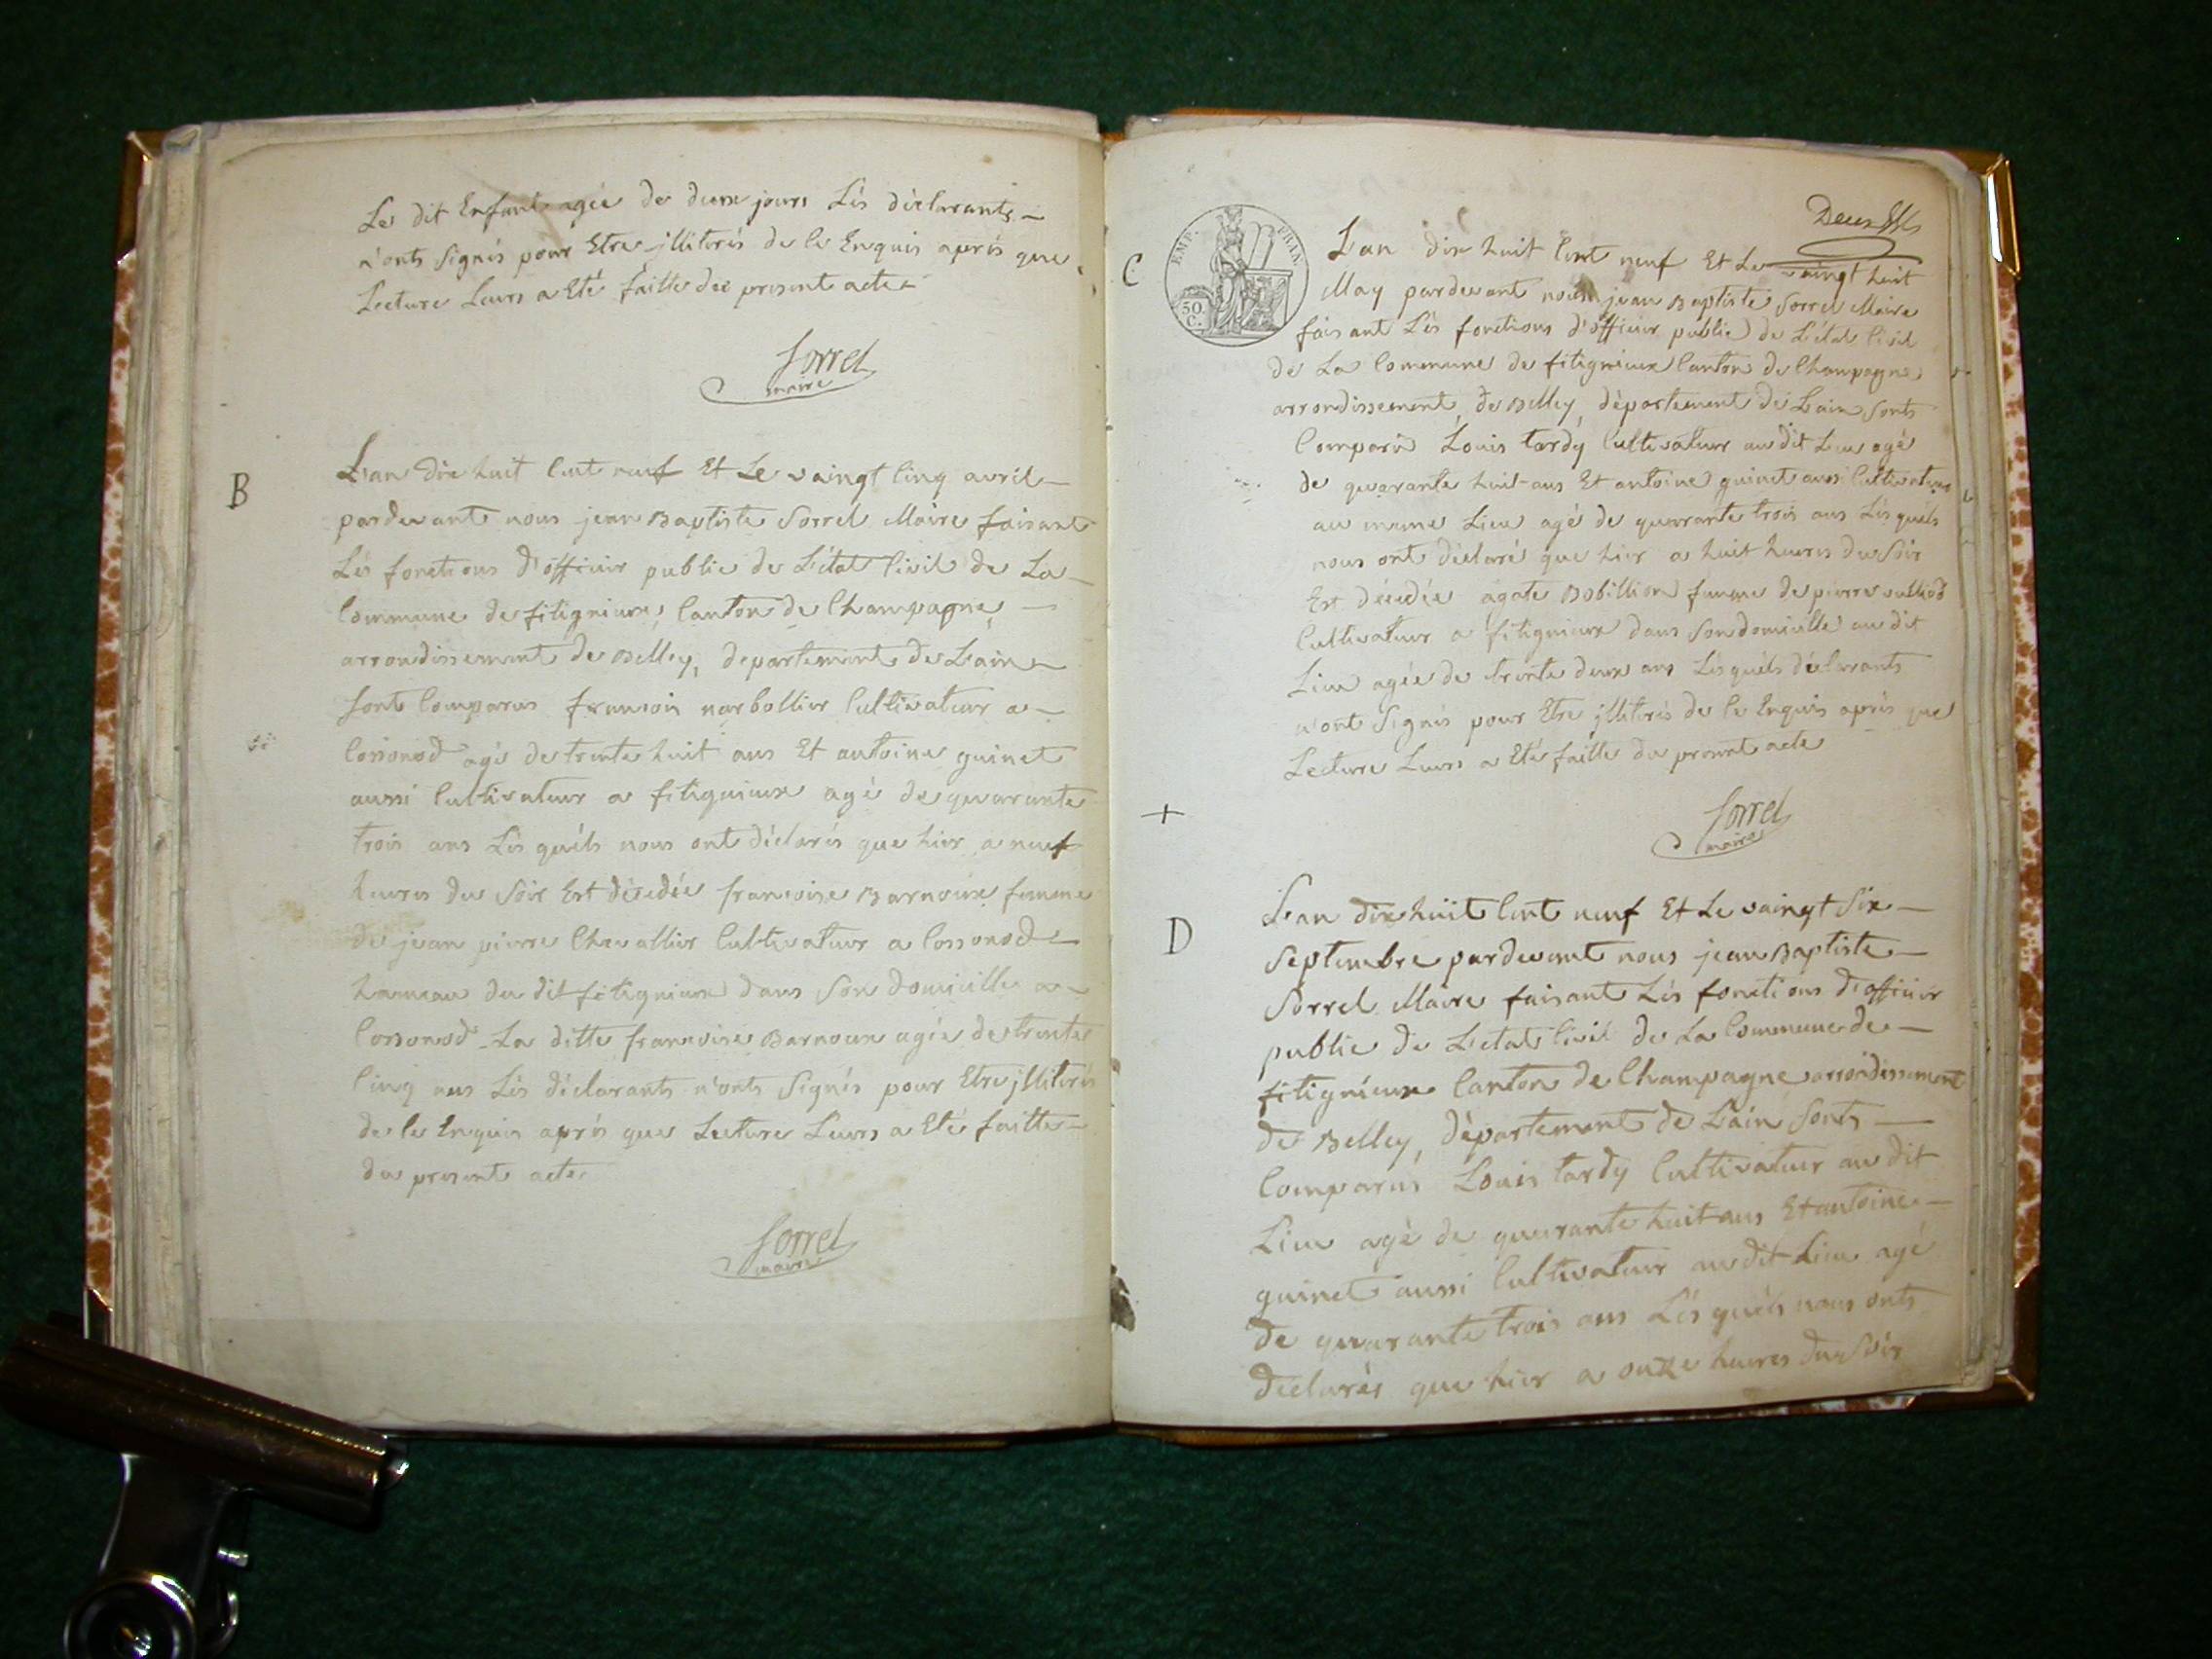 Le dit Enfant agée de deux jours Lés déclarants
n'onts Signés pour Etre jllitérés de le Enquis aprés que
Lecture Leurs a Eté faitte du present acte
Sorrel
maire
B
L'an dix huit Cent neuf Et Le vaingt Cinq avril
pardevant nous jean Baptiste Sorrel Maire faisant
Lés fonctions d'officier public de L'état Civil de La
Commune de fitignieux, Canton de Champagne,
arrondissement de Belley, departement de L'ain
Sont Comparus francois narbollier Cultivateur a
Cossonod agé de trente huit ans Et antoine guinet
aussi Cultivateur a fitignieux agé de quarante
trois ans Lés quéls nous ont déclarés que hier a neuf
heures du Soir Est décedée francoise Barnoux femme
de jean pierre Chevallier Cultivateur a Cossonod
hameau du dit fitignieux dans Son domicille a
Cossonod La ditte francoise Barnoux agée de trente
Cinq ans Lés déclarants n'onts Signés pour Etre jllitérés
de le Enquis aprés que Lecture Leurs a Eté faitte
du present acte
Sorrel
maire
Deux
EMP. FRAN.
50
C.
C
L'an dix huit Cent neuf Et Le vaingt huit
May pardevant nous jean Baptiste Sorrel Maire
faisant Lés fonctions d'officier public de L'état Civil
de La Commune de fitignieux Canton de Champagne
arrondissement de Belley, département de L'ain Sonts
Comparu Louis tardy Cultivateur au dit Lieu agé
de quarante huit ans Et antoine guinet aussi Cultivateur
au meme Lieu agé de quarante trois ans Lés quéls
nous ont déclaré que hier a huit heures du Soir
Est décedée agate Bobillion femme de pierre vulliod
Cultivateur a fitignieux dans Son domicille au dit
Lieu agée de trente deux ans Lésquéls déclarants
n'ont Signés pour Etre jllitérés de le Enquis aprés que
Lecture Leurs a Eté faitte du present acte
Sorrel
maire
+
D
L'an dix huit Cent neuf Et Le vaingt Six
Septembre pardevant nous jean Baptiste
Sorrel Maire faisant Lés fonctions d'officier
public de L'etat Civil de La Commune de
fitignieux Canton de Champagne arrondissement
de Belley, département de L'ain Sonts
Comparus Louis tardy Cultivateur au dit
Lieu agé de quarante huit ans Et antoine
guinet aussi Cultivateur au dit Lieu agé
de quarante trois ans Lés quéls nous onts
déclarés que hier a onze heures du Soir